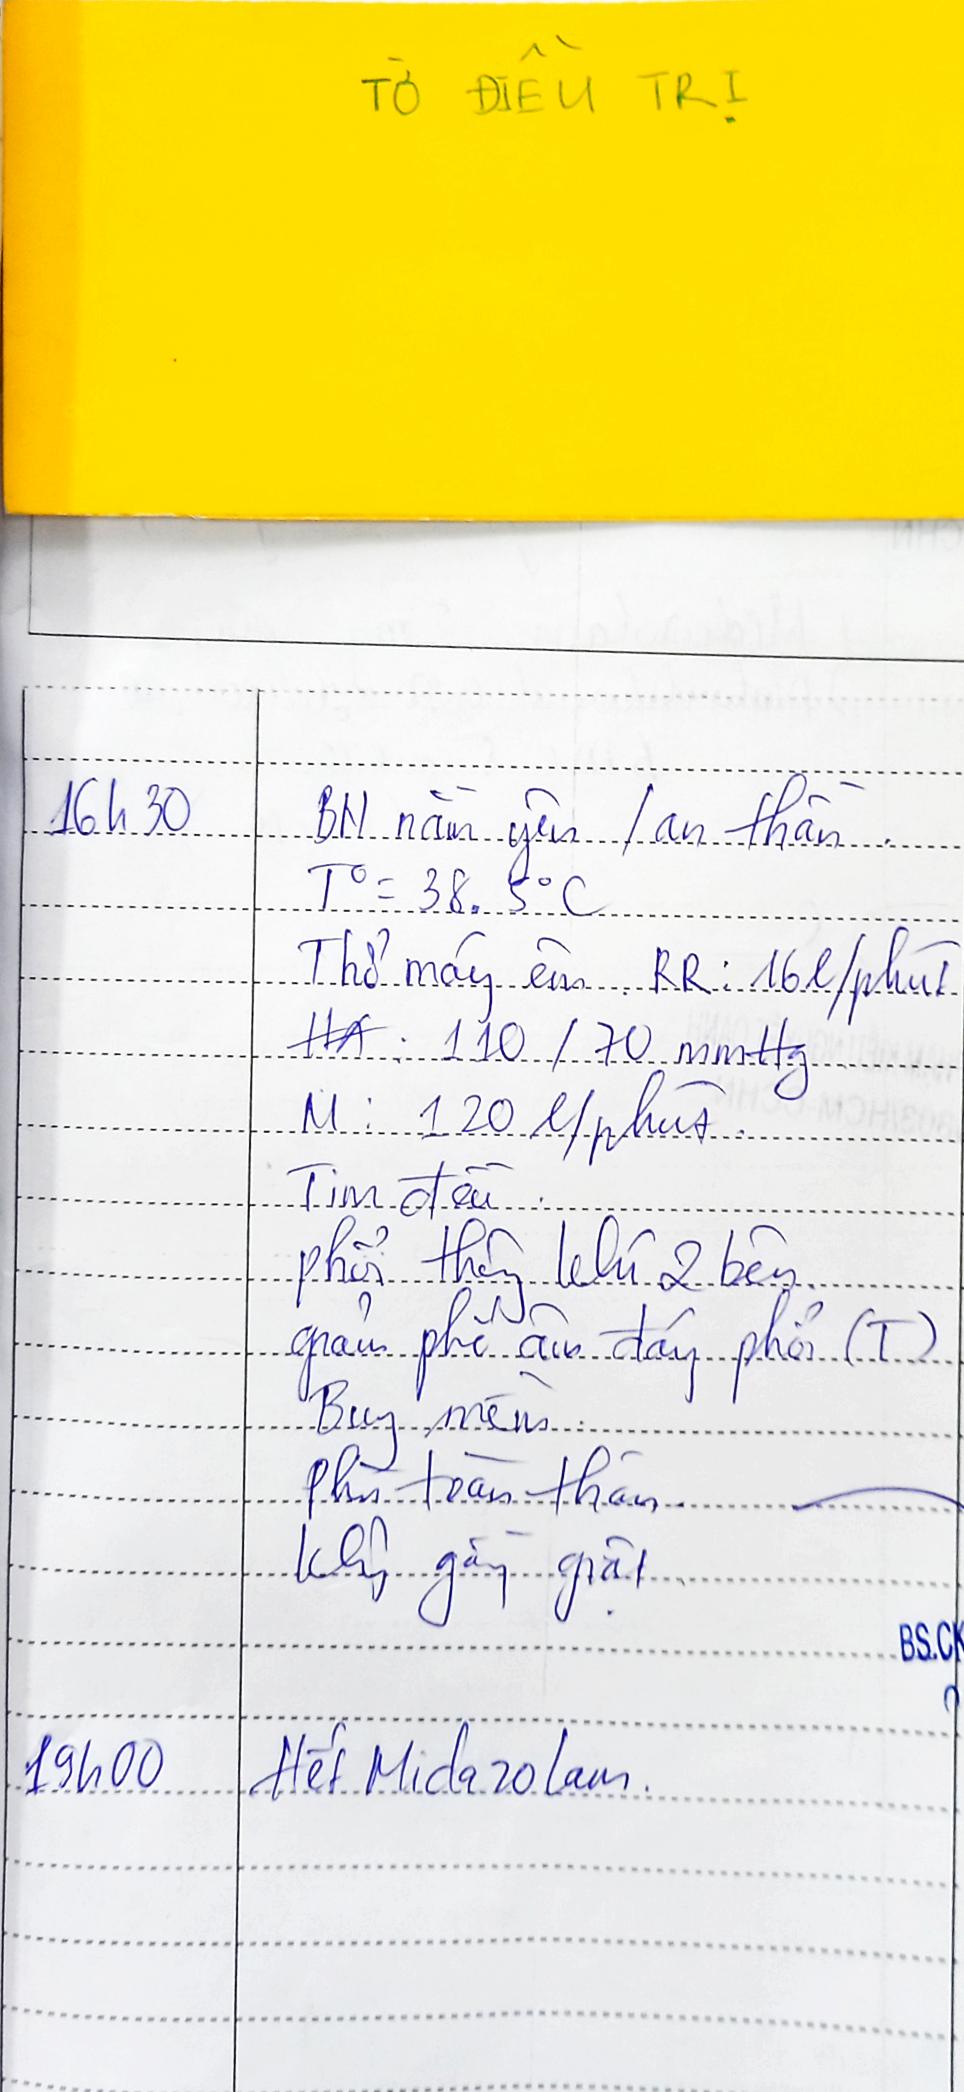 TỜ ĐIỀU TRỊ
16h30 BN nằm yên / an thần.
T° = 38.5°C
Thở máy êm. RR: 16 l/phút
HA: 110 / 70 mmHg
M: 120 l/phút.
Tim đều.
phổi thông khí 2 bên.
giảm phế âm đáy phổi (T)
Bụng mềm.
Phù toàn thân.
Không gồng giật.
BS.CK
19h00 Hết Midazolam.